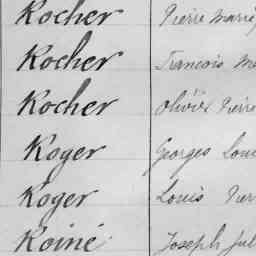 Rocher Pierre Marie
Rocher Francois
Rocher Olivier Pierre
Roger Georges Loui
Roger Louis
Roiné Joseph Jul